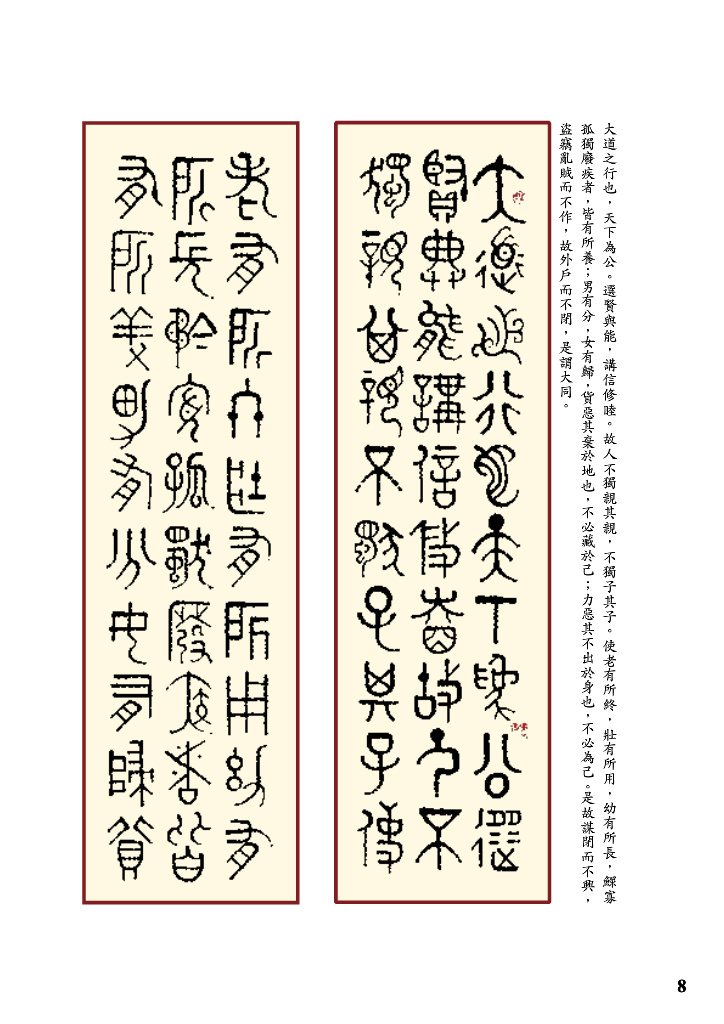 大道之行也，天下為公。選賢與能，講信修睦。故人不獨親其親，不獨子其子。使老有所終，壯有所用，幼有所長，鰥寡
孤獨廢疾者，皆有所養；男有分，女有歸，貨惡其棄於地也，不必藏於己；力惡其不出於身也，不必為己。是故謀閉而不興，
盜竊亂賊而不作，故外戶而不閉，是謂大同。
大道之行也天下為公選
賢與能講信修睦故人不
獨親其親不獨子其子使
老有所終壯有所用幼有
所長矜寡孤獨廢疾者皆
有所養男有分女有歸貨
8